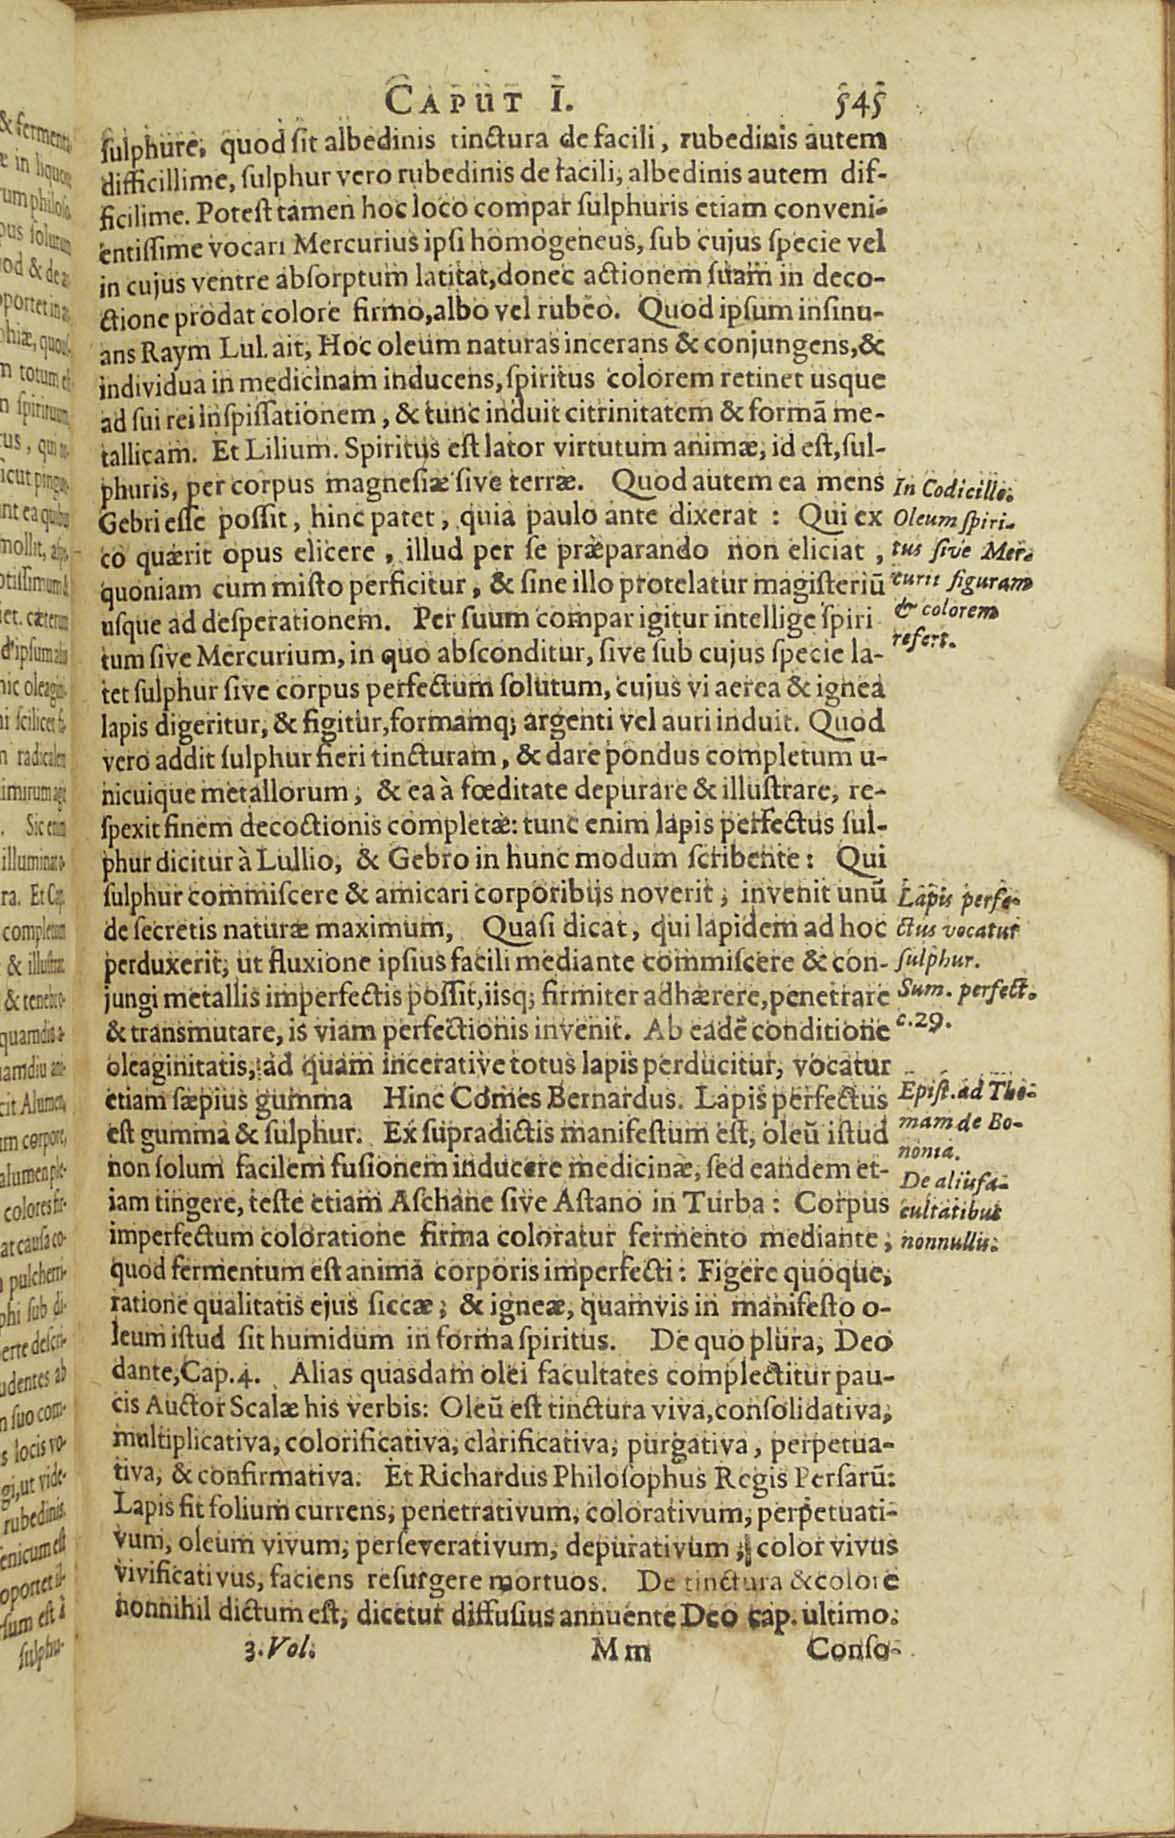 CAPUT I. 545
ſulphure, quod ſit albedinis tinctura de facili, rubedinis autem
difficillime, ſulphur vero rubedinis de facili, albedinis autem dif-
ficilime. Poteſt tamen hoc loco compar ſulphuris etiam conveni-
entiſſime vocari Mercurius ipſi homogeneus, ſub cujus ſpecie vel
in cujus ventre abſorptum latitat, donec actionem ſuam in deco-
ctione prodat colore firmo, albo vel rubeo. Quod ipſum inſinu-
ans Raym Lul. ait, Hoc oleum naturas incerans & conjungens, &
individua in medicinam inducens, ſpiritus colorem retinet usque
ad ſui rei inſpiſſationem, & tunc induit citrinitatem & formā me-
tallicam. Et Lilium. Spiritus eſt lator virtutum animæ, id eſt, ſul-
phuris, per corpus magneſiæ ſive terræ. Quod autem ea mens
Gebri eſſe poſſit, hinc patet, quia paulo ante dixerat : Qui ex
co quærit opus elicere, illud per ſe præparando non eliciat,
quoniam cum miſto perficitur, & ſine illo protelatur magiſteriū
usque ad deſperationem. Per ſuum compar igitur intellige ſpiri
tum ſive Mercurium, in quo abſconditur, ſive ſub cujus ſpecie la-
tet ſulphur ſive corpus perfectum ſolutum, cujus vi aerea & ignea
lapis digeritur, & figitur, formamq; argenti vel auri induit. Quod
vero addit ſulphur fieri tincturam, & dare pondus completum u-
nicuique metallorum, & ea à fœditate depurare & illuſtrare, re-
ſpexit finem decoctionis completæ: tunc enim lapis perfectus ſul-
phur dicitur à Lullio, & Gebro in hunc modum ſcribente: Qui
ſulphur commiſcere & amicari corporibus noverit, invenit unū
de ſecretis naturæ maximum, Quaſi dicat, qui lapidem ad hoc
perduxerit, ut fluxione ipſius facili mediante commiſcere & con-
jungi metallis imperfectis poſſit, iisq; firmiter adhærere, penetrare
& transmutare, is viam perfectionis invenit. Ab eadē conditione
oleaginitatis, ad quam incerative totus lapis perducitur, vocatur
etiam ſæpius gumma Hinc Comes Bernardus. Lapis perfectus
eſt gumma & ſulphur. Ex ſupradictis manifeſtum eſt, oleū iſtud
non ſolum facilem fuſionem inducere medicinæ, ſed eandem et-
iam tingere, teſte etiam Aſchane ſive Aſtano in Turba : Corpus
imperfectum coloratione firma coloratur fermento mediante,
quod fermentum eſt anima corporis imperfecti : Figere quoque,
ratione qualitatis ejus ſiccæ, & igneæ, quamvis in manifeſto o-
leum iſtud ſit humidum in forma ſpiritus. De quo plura, Deo
dante, Cap. 4. Alias quasdam olei facultates complectitur pau-
cis Auctor Scalæ his verbis: Oleū eſt tinctura viva, conſolidativa,
multiplicativa, colorificativa, clarificativa, purgativa, perpetua-
tiva, & confirmativa. Et Richardus Philoſophus Regis Perſarū:
Lapis fit folium currens, penetrativum, colorativum, perpetuati-
vum, oleum vivum, perſeverativum, depurativum, color vivus
vivificativus, faciens reſurgere mortuos. De tinctura & colore
nonnihil dictum eſt, dicetur diffuſius annuente Deo cap. ultimo.
3. Vol. Mm Conſo-
In Codicillo.
Oleum ſpiri-
tus ſive Mer-
curii figuram
& colorem
refert.
Lapis perfe-
ctus vocatur
ſulphur.
Sum. perfect.
c. 29.
Epiſt. ad Tho-
mam de Bo-
nonia.
De aliis fa-
cultatibus
nonnullis.
& fermenti
in liquo
pus ſolutum
m totum
n ſpirituum
mollit,
d' ipſum
ni ſcilicet
n radicalem
Sic enim
illuminat
ra. Et Cap.
completum
& illuſtrat
quamdiu
cit Alumen,
colores
pulcherri-
phi ſub di-
erte deſcri-
udentes ab
n ſuo com-
s locis vo-
gi, ut vide-
rubedinis.
enicum eſt
ſulphu-